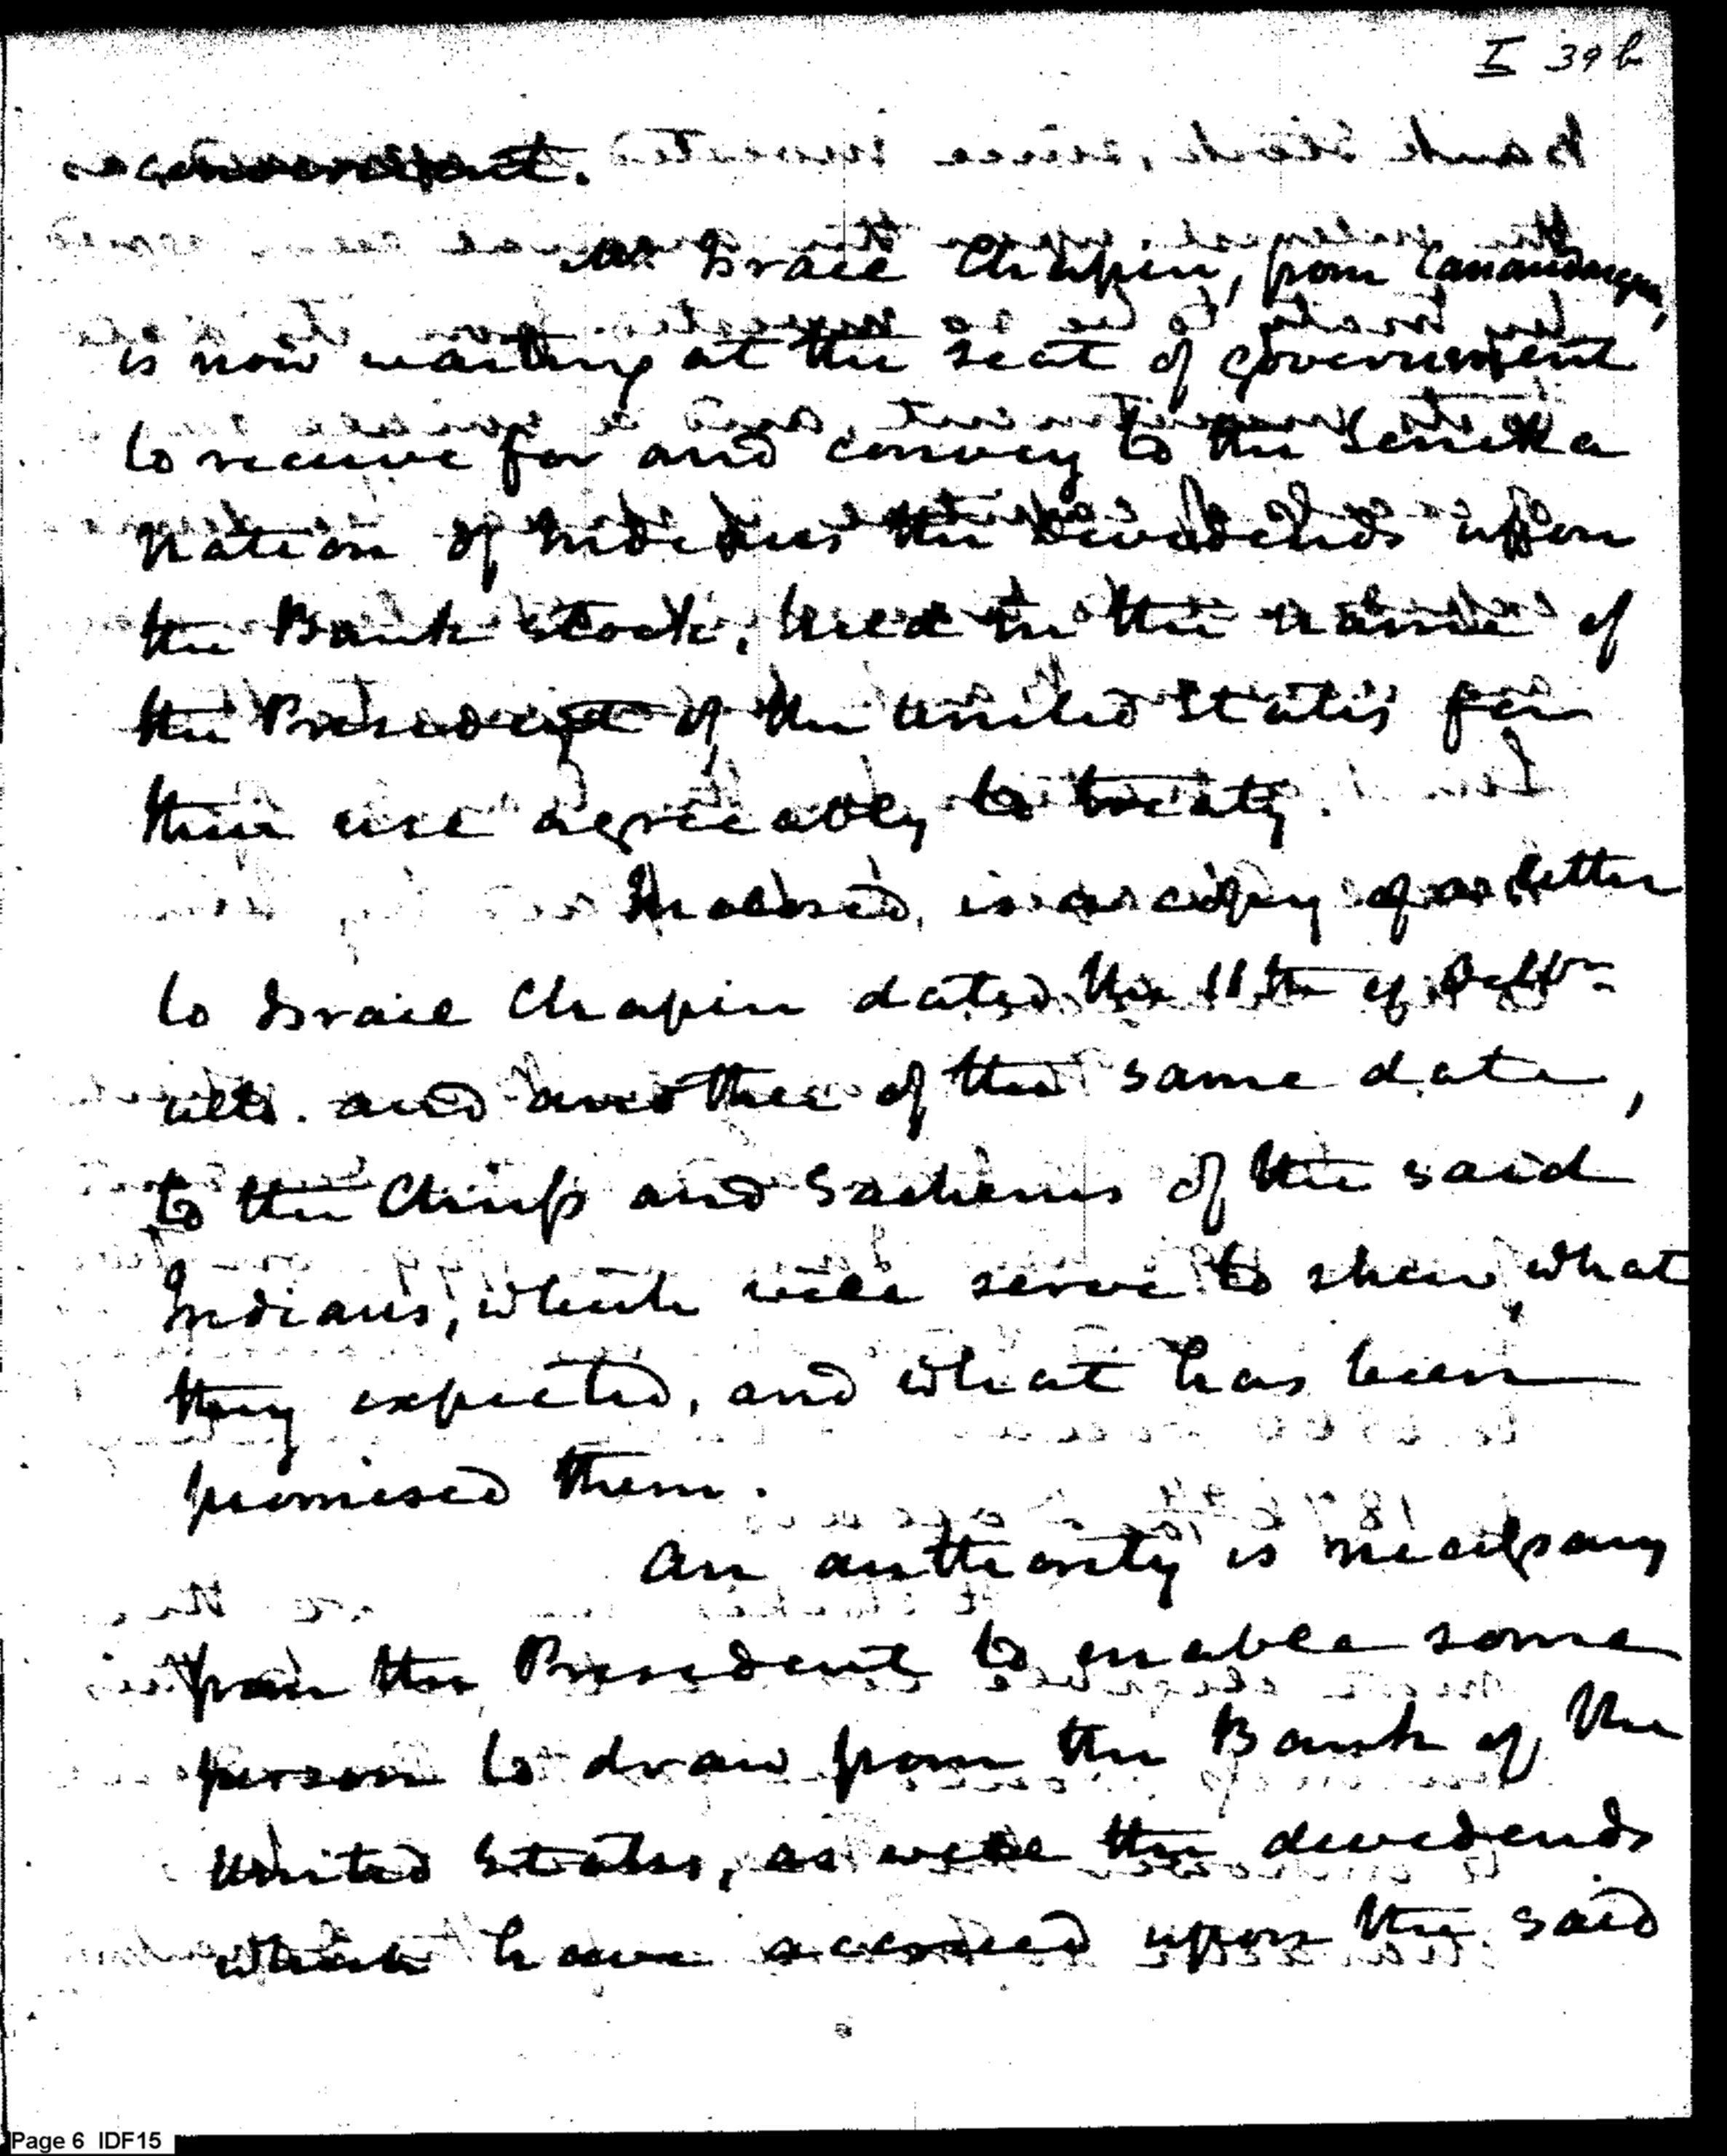 I 39 b
Israel Chapin, from Canandaigua,
is now waiting at the seat of government
to receive for and convey to the Seneka
Nation of Indians the Dividends upon
the Bank Stock, held in the name of
the President of the United States for
their use agreeably to treaty.
Inclosed, is a copy of a letter
to Israel Chapin dated the 11th of
ulto. and another of the same date,
to the Chiefs and Sachems of the said
Indians, which will serve to shew what
they expected, and what has been
promised them.
An authority is necessary
from the President to enable some
person to draw from the Bank of the
United States, as well the dividends
which have accrued upon the said
Page 6 IDF15